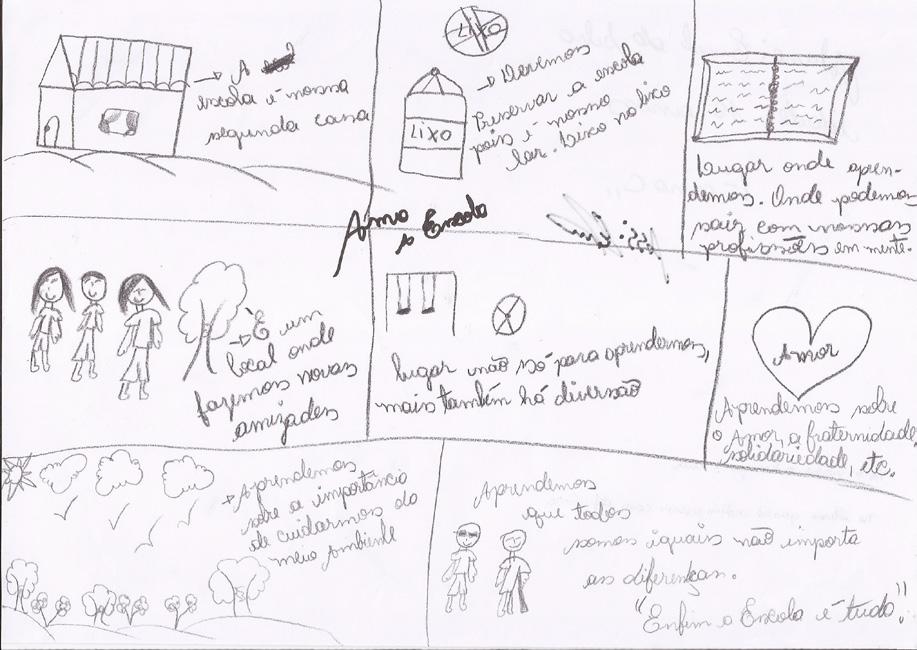 → A
escola é nossa
segunda casa
LIXO
LIXO
→ Devemos
Preservar a escola
pois é nosso
lar. Lixo no lixo
Lugar onde apren-
demos. Onde podemos
sair com nossas
profissões em mente.
Amo
a Escola
→ É um
local onde
fazemos novas
amizades
Lugar não só para aprendermos,
mais também há diversão
Amor
Aprendemos sobre
o Amor, a fraternidade,
solidariedade, etc.
→ Aprendemos
sobre a importância
de cuidarmos do
meio Ambiente
Aprendemos
que todos
somos iguais não importa
as diferenças.
"Enfim a Escola é tudo."